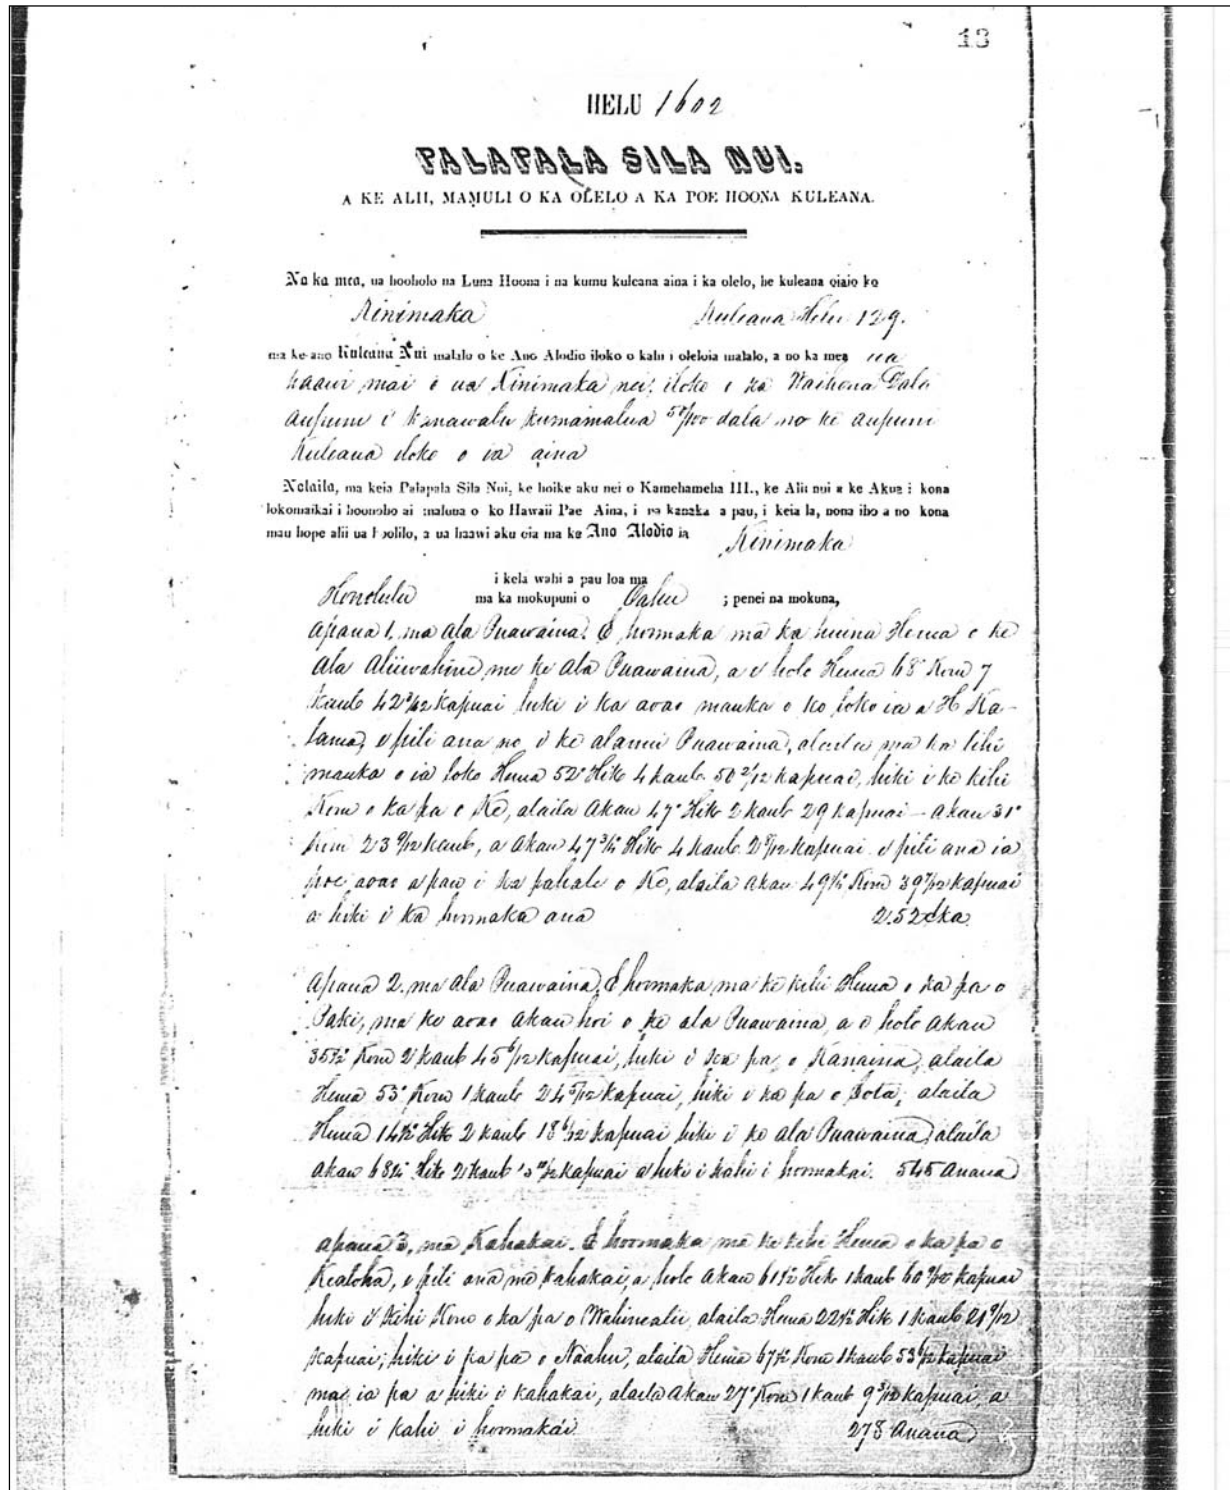 13
HELU 1602
PALAPALA SILA NUI.
A KE ALII, MAMULI O KA OLELO A KA POE HOONA KULEANA.
No ka mea, ua hooholo na Luna Hoona i na kumu kuleana aina i ka olelo, he kuleana oiaio ko
Kinimaka Kuleana Helu 129.
ma ke ano Kuleana Nui malalo o ke Ano Alodio iloko o kahi i oleloia malalo, a no ka mea ua
haawi mai o ua Kinimaka nei iloko o ka Waihona Dala
Aupuni i kanawalu kumamalua 50/100 dala no ke aupuni
Kuleana iloko o ia aina
Nolaila, ma keia Palapala Sila Nui, ke hoike aku nei o Kamehameha III., ke Alii nui a ke Akua i kona
lokomaikai i hoonoho ai maluna o ko Hawaii Pae Aina, i na kanaka a pau, i keia la, nona iho a no kona
mau hope alii ua hoolilo, a ua haawi aku oia ma ke Ano Alodio ia Kinimaka
i kela wahi a pau loa ma
Honolulu ma ka mokupuni o Oahu ; penei na mokuna,
Apana 1, ma Ala Puawaina. E hoomaka ma ka huina Hema o ke
Ala Aliiwahine me ke Ala Puawaina, a e holo Hema 68° Kom 7
kaul 42 /12 kapuai hiki i ka aoao mauka o ko loko ia a H Ka-
lama, e pili ana no i ke alanui Puawaina, alaila ma ka lihi
mauka o ia loko Hema 52° Hik 4 kaul. 50 2/12 kapuai, hiki i ke kihi
Kom o ka pa o Ke, alaila Akau 47° Hik 2 kaul 29 kapuai - Akau 31°
Kom 23 9/12 kaul, a Akau 47 3/4° Hik 4 kaul. 2 /12 kapuai e pili ana ia
poe aoao a pau i ka pahale o Ke, alaila Akau 49 ½° Kom 39 /12 kapuai
a hiki i ka hoomaka ana 2.52 Eka.
Apana 2. ma Ala Puawaina. E hoomaka ma ke kihi Hema o ka pa o
Paki, ma ke aoao Akau hoi o ke ala Puawaina, a e holo Akau
35½° Kom 2 kaul 45 6/12 kapuai, hiki i ka pa o Kanaina, alaila
Hema 53° Kom 1 kaul 24 5/12 kapuai, hiki i ka pa o alaila
Hema 14½° Hik 2 kaul 18 6/12 kapuai hiki i ke ala Puawaina, alaila
Akau 68½° Hik 2 kaul kapuai a hiki i kahi i hoomakai. 545 Anana
Apana 3, ma Kahakai. E hoomaka ma ke kihi Hema o ka pa o
Kealoha, e pili ana me kahakai, a holo Akau 61½° Hik 1 kaul 60 9/12 kapuai
hiki i kihi Kom o ka pa o Wahinealii, alaila Hema 22½° Hik 1 kaul 21 9/12
kapuai; hiki i pa pa o Naahu, alaila Hema 67½° Kom 1 kaul 53 6/12 kapuai
ma ia pa a hiki i kahakai, alaila Akau 27° Kom 1 kaul 9 3/12 kapuai, a
hiki i kahi i hoomakai 278 Anana